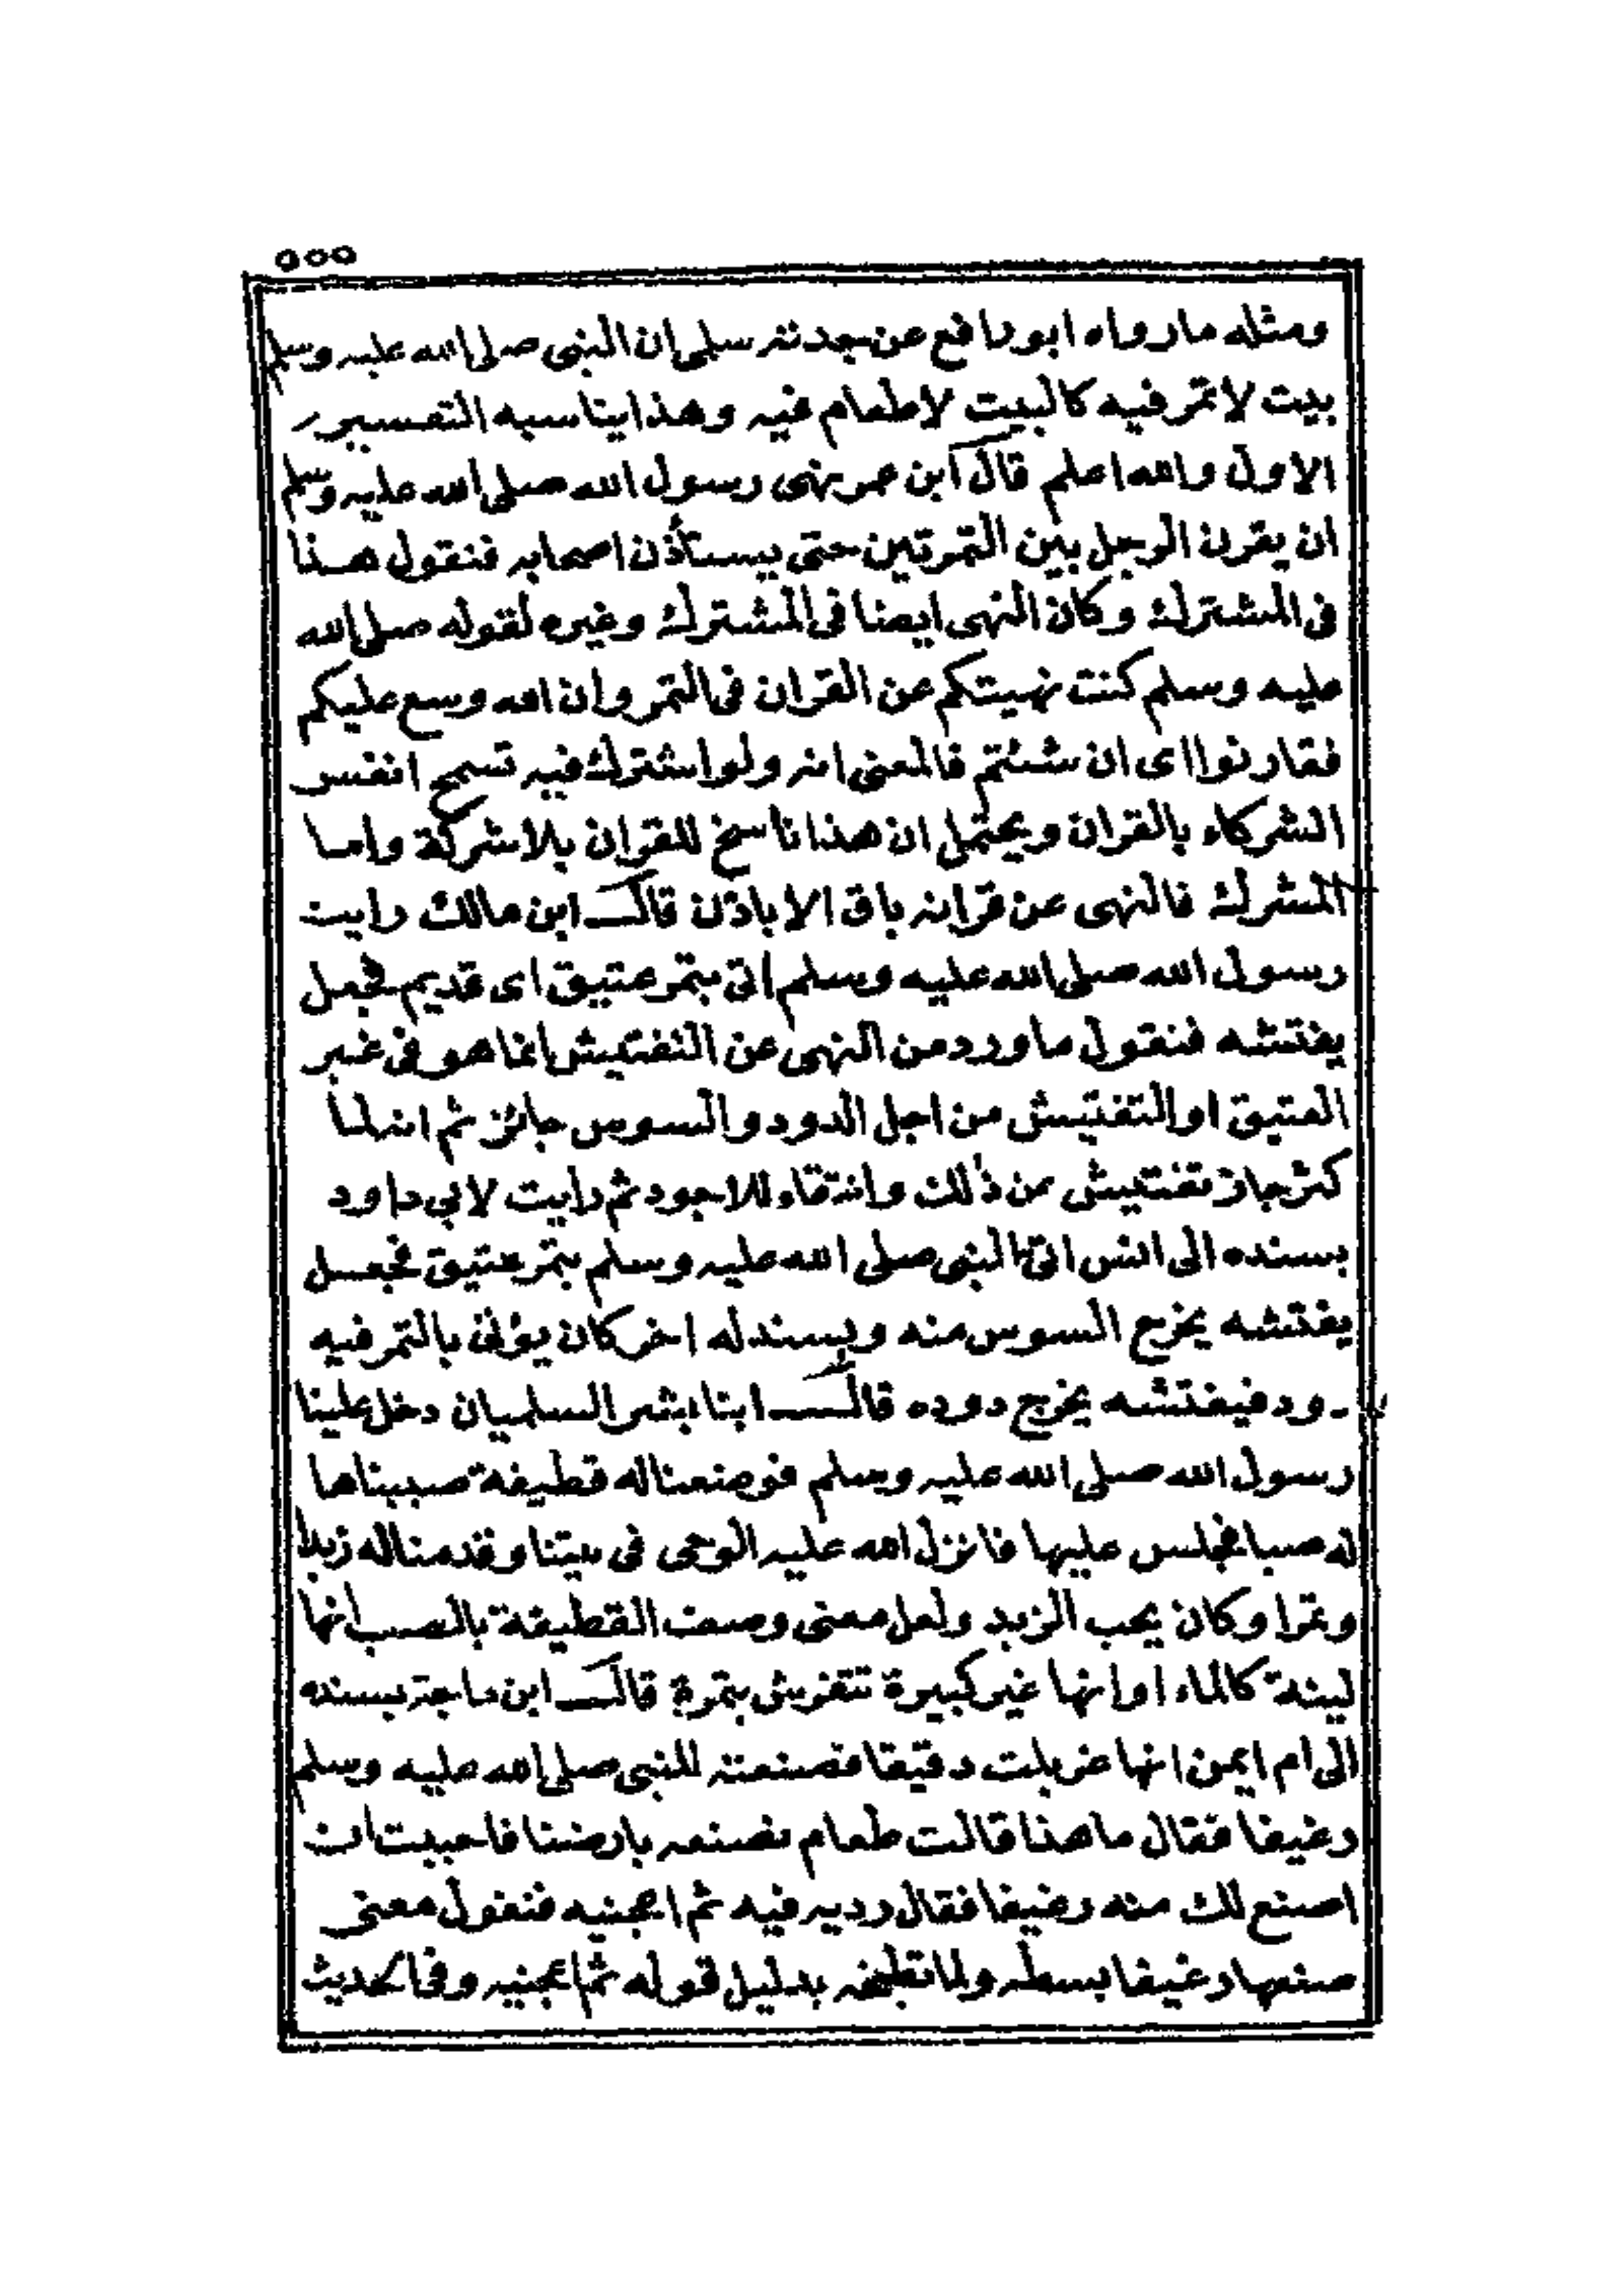 ٥٥٥
ومثله مارواه ابورافع عن جدته سلمى ان النبى صلى الله عليه وسلم
بيت لاتمر فيه كالبيت لاطعام فيه وهذا يناسبه التفسير
الاول والله اعلم قال ابن عمر نهى رسول الله صلى الله عليه وسلم
ان يقرن الرجل بين التمرتين حتى يستأذن اصحابه فنقول هذا
فى المشترك وكان النهى ايضا فى المشترك وغيره لقوله صلى الله
عليه وسلم كنت نهيتكم عن القران فى التمر وان الله وسع عليكم
فقارنوا اى ان شئتم فالمعنى انه ولو اشترك فيه تسمح انفس
الشركاء بالقران ويحتمل ان هذا ناسخ للقران بلاشركة واما
المشرك فالنهى عن قرانه باق الا باذن قال ابن مالك رايت
رسول الله صلى الله عليه وسلم اتى بتمر عتيق اى قديم فجعل
يفتشه فنقول ما ورد من النهى عن التفتيش انما هو فى غير
العتيق او التفتيش من اجل الدود والسوس جائز ثم انه لما
كثر جاز تفتيش من ذلك وانتقاء للاجود ثم رايت لابي داود
بسنده الى انس اتى النبى صلى الله عليه وسلم بتمر عتيق فجعل
يفتشه يخرج السوس منه وبسند له اخر كان يؤتى بالتمر فيه
دود فيفتشه يخرج دوده قال ابنا بشر السلميان دخل علينا
رسول الله صلى الله عليه وسلم فوضعنا له قطيفة صببناها
له صبا فجلس عليها فانزل الله عليه الوحى فى بيتنا وقدمنا له زبدا
وتمرا وكان يحب الزبد ولعل معنى وصف القطيفة بالصب انها
لينة كالماء او انها غير كبيرة تتفرش بتمرة قال ابن ماجة بسنده
الى ام ايمن انها غربلت دقيقا فصنعته للنبى صلى الله عليه وسلم
رغيفا فقال ما هذا قالت طعام نصنعه بارضنا فاحببت ان
اصنع لك منه رغيفا فقال رديه فيه ثم اعجنيه فنقول معنى
صنعها رغيفا بسطه ولما تطبخه بدليل قوله ثم اعجنيه وفى الحديث